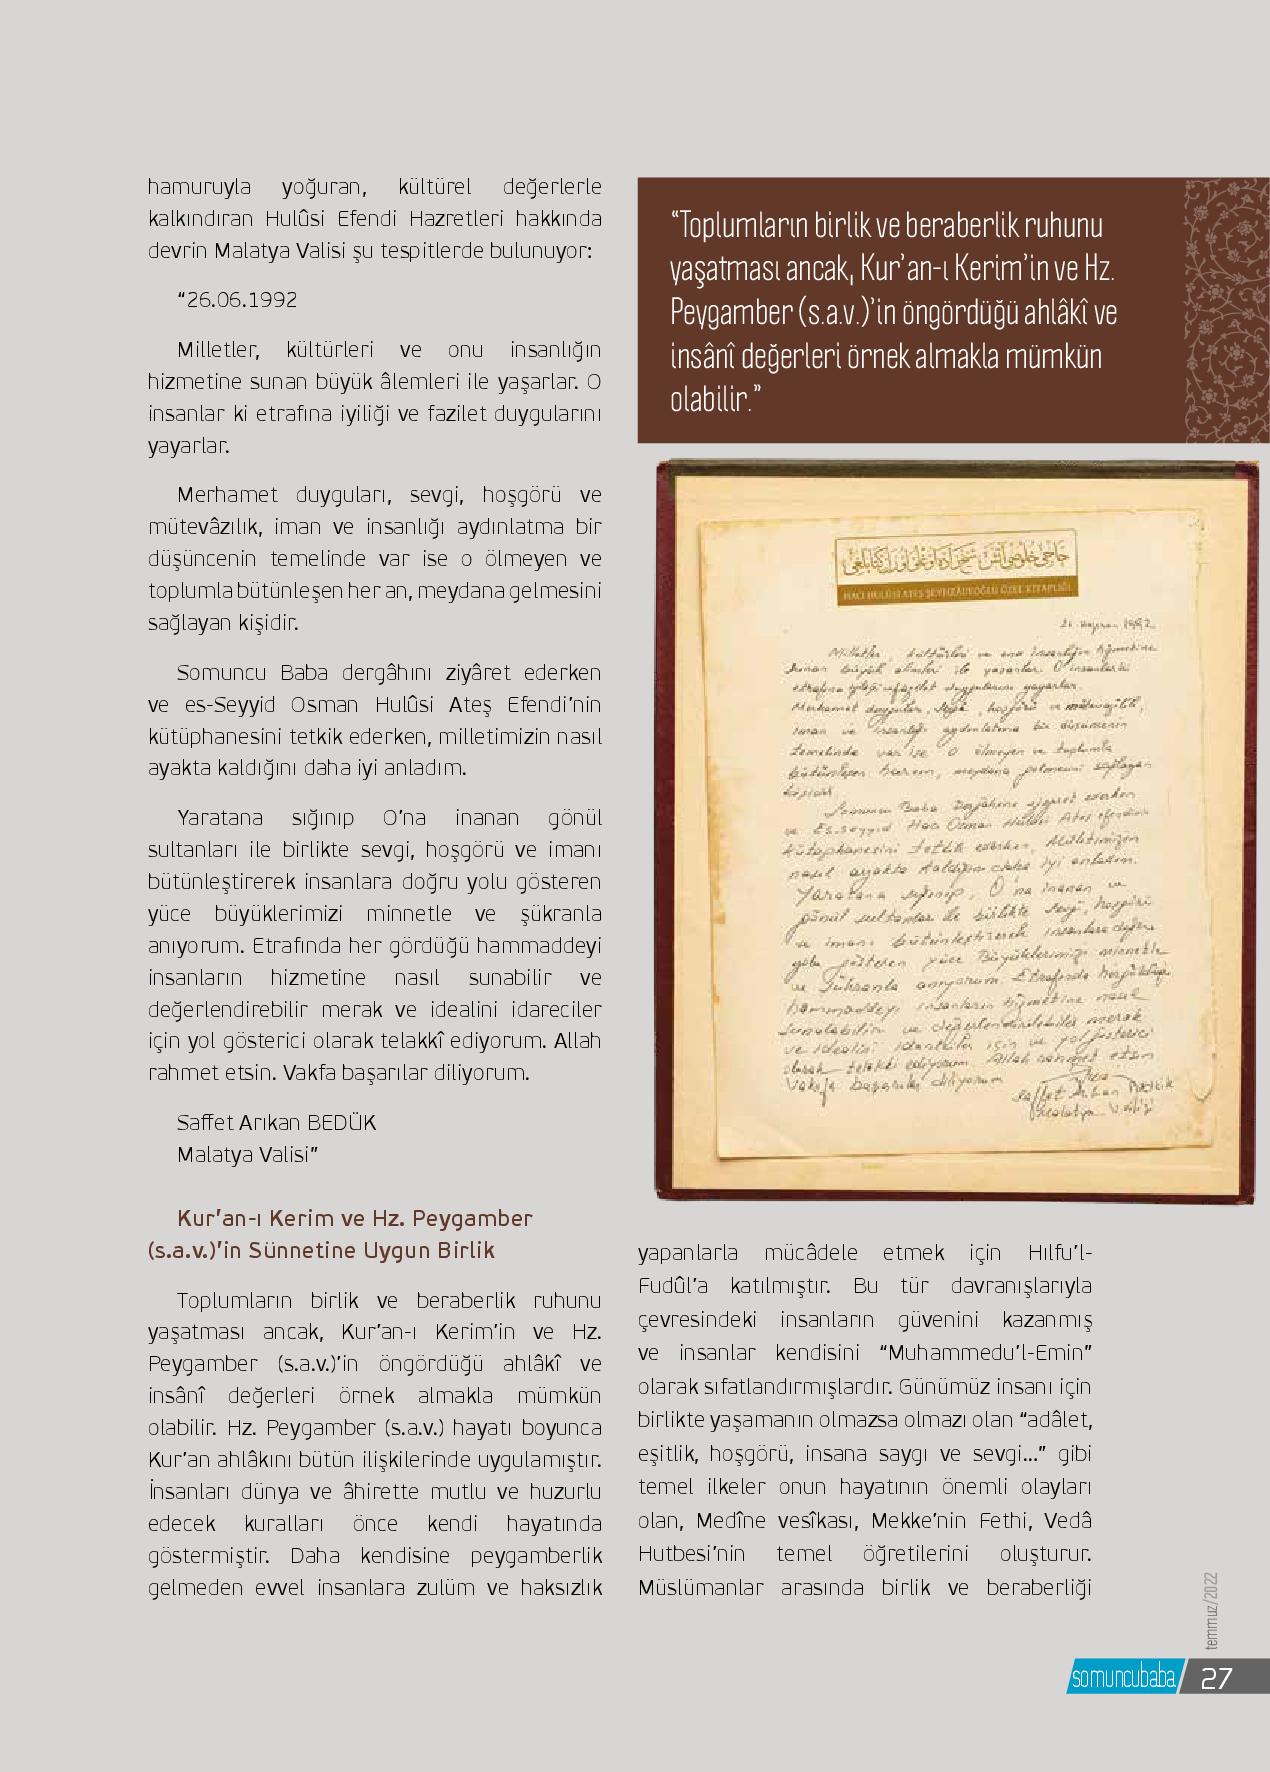 hamuruyla yoğuran, kültürel değerlerle
kalkındıran Hulûsi Efendi Hazretleri hakkında
devrin Malatya Valisi şu tespitlerde bulunuyor:
“26.06.1992
Milletler, kültürleri ve onu insanlığın
hizmetine sunan büyük âlemleri ile yaşarlar. O
insanlar ki etrafına iyiliği ve fazilet duygularını
yayarlar.
Merhamet duyguları, sevgi, hoşgörü ve
mütevâzılık, iman ve insanlığı aydınlatma bir
düşüncenin temelinde var ise o ölmeyen ve
toplumla bütünleşen her an, meydana gelmesini
sağlayan kişidir.
Somuncu Baba dergâhını ziyâret ederken
ve es-Seyyid Osman Hulûsi Ateş Efendi’nin
kütüphanesini tetkik ederken, milletimizin nasıl
ayakta kaldığını daha iyi anladım.
Yaratana sığınıp O’na inanan gönül
sultanları ile birlikte sevgi, hoşgörü ve imanı
bütünleştirerek insanlara doğru yolu gösteren
yüce büyüklerimizi minnetle ve şükranla
anıyorum. Etrafında her gördüğü hammaddeyi
insanların hizmetine nasıl sunabilir ve
değerlendirebilir merak ve idealini idareciler
için yol gösterici olarak telakkî ediyorum. Allah
rahmet etsin. Vakfa başarılar diliyorum.
Saffet Arıkan BEDÜK
Malatya Valisi”
Kur’an-ı Kerim ve Hz. Peygamber
(s.a.v.)’in Sünnetine Uygun Birlik
Toplumların birlik ve beraberlik ruhunu
yaşatması ancak, Kur’an-ı Kerim’in ve Hz.
Peygamber (s.a.v.)’in öngördüğü ahlâkî ve
insânî değerleri örnek almakla mümkün
olabilir. Hz. Peygamber (s.a.v.) hayatı boyunca
Kur’an ahlâkını bütün ilişkilerinde uygulamıştır.
İnsanları dünya ve âhirette mutlu ve huzurlu
edecek kuralları önce kendi hayatında
göstermiştir. Daha kendisine peygamberlik
gelmeden evvel insanlara zulüm ve haksızlık
“Toplumların birlik ve beraberlik ruhunu
yaşatması ancak, Kur’an-ı Kerim’in ve Hz.
Peygamber (s.a.v.)’in öngördüğü ahlâkî ve
insânî değerleri örnek almakla mümkün
olabilir.”
HACI HULÛSİ ATEŞ ŞEYHZÂDEOĞLU ÖZEL KİTAPLIĞI
26 Haziran 1992
Milletler, kültürleri ve onu insanlığın hizmetine
sunan büyük alemleri ile yaşarlar. O insanlar ki
etrafına iyiliği ve fazilet duygularını yayarlar.
Merhamet duyguları, sevgi, hoşgörü ve mütevazilik,
iman ve insanlığı aydınlatma bir düşüncenin
temelinde var ise O ölmeyen ve toplumla
bütünleşen meydana gelmesini sağlayan
kişidir.
Somuncu Baba Dergahını ziyaret ederken
ve Es-Seyyid Hacı Osman Hulusi Ateş efendinin
kütüphanesini tetkik ederken, Milletimizin
nasıl ayakta kaldığını daha iyi anladım.
Yaratana sığınıp, O'na inanan ve
gönül sultanları ile birlikte sevgi, hoşgörü
ve imanı bütünleştirerek insanlara doğru
yolu gösteren yüce Büyüklerimizi minnetle
ve Şükranla anıyorum. Etrafında her gördüğü
hammaddeyi insanların hizmetine nasıl
sunabilir ve değerlendirebilir merak
ve idealini için ve yol gösterici
olarak telakki ediyorum. Allah rahmet etsin
Vakıfa başarılar diliyorum
Saffet Arıkan Bedük
Malatya Valisi
yapanlarla mücâdele etmek için Hılfu’l-
Fudûl’a katılmıştır. Bu tür davranışlarıyla
çevresindeki insanların güvenini kazanmış
ve insanlar kendisini “Muhammedu’l-Emin”
olarak sıfatlandırmışlardır. Günümüz insanı için
birlikte yaşamanın olmazsa olmazı olan “adâlet,
eşitlik, hoşgörü, insana saygı ve sevgi...” gibi
temel ilkeler onun hayatının önemli olayları
olan, Medîne vesîkası, Mekke’nin Fethi, Vedâ
Hutbesi’nin temel öğretilerini oluşturur.
Müslümanlar arasında birlik ve beraberliği
temmuz/2022
somuncubaba 27